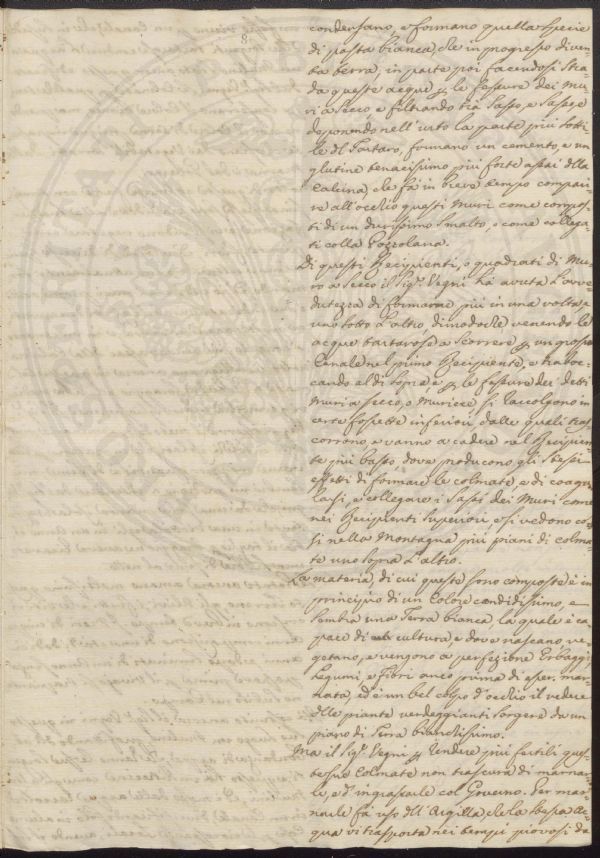 8
condensano, e formano quella specie
di pasta bianca, che in progresso diven-
ta terra, in parte poi facendosi stra-
da queste acque p. le fessure dei Mu-
ri a secco, e filtrando trà Sasso, e Sasso, e
deponendo nell'urto la parte più sotti-
le del Tartaro, formano un cemento, e un
glutine tenacissimo più forte assai della
Calcina, che fà in breve tempo compari-
re all'occhio questi Muri come compos-
ti di un durissimo smalto, o come collega-
ti colla Pozzolana.
Di questi Recipienti, o quadrati di Mu-
ro a secco il Sig.r Vegni hà avuta l'avve-
dutezza di formarne più in una volta
uno sotto l'altro, dimodoche venendo le
acque tartarose a scorrere p. un grosso
Canale nel primo Recipiente, e traboc-
cando al di sopra e p. le fessure dei detti
Muri a secco, o Muricce, si raccolgono in
certe fossette inferiori, dalle quali tras-
corrono, e vanno a cadere nel Recipien-
te più basso, dove producono gli stessi
effetti di formare le colmate, e di coagu-
larsi, e collegare i Sassi dei Muri come
nei Recipienti superiori, e si vedono co-
sì nella Montagna più piani di colma-
te uno sopra l'altro.
La materia, di cui queste sono composte è in
principio di un Colore candidissimo, e
sembra una Terra bianca, la quale è ca-
pace di cultura, e dove nascano, ve-
getano, e vengono a perfezione Erbaggi,
legumi, e Fiori anco prima di esser mar-
nata, ed è un bel colpo d'occhio il vedere
delle piante verdeggianti sorgere da un
piano di Terra bianchissimo.
Ma il Sig.r Vegni p. rendere più fertili ques-
te sue Colmate non trascura di marnar-
le, e d'ingrassarle col Governo. Per mar-
narle fà uso dell'Argilla, che la stessa Ac-
qua vi trasporta nei tempi piovosi da